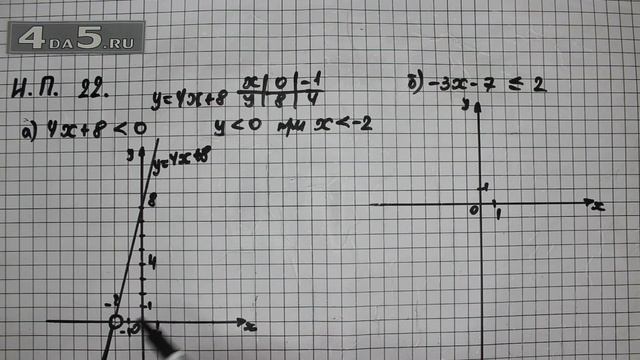 4DA5.RU
Н.П. 22.
y=4x+8
x | 0 | -1
y | 8 | 4
а) 4x+8<0
y<0 при x<-2
y
y=4x+8
8
4
1
-2
-1
0
x
б) -3x-7 ≤ 2
y
1
0
1
x